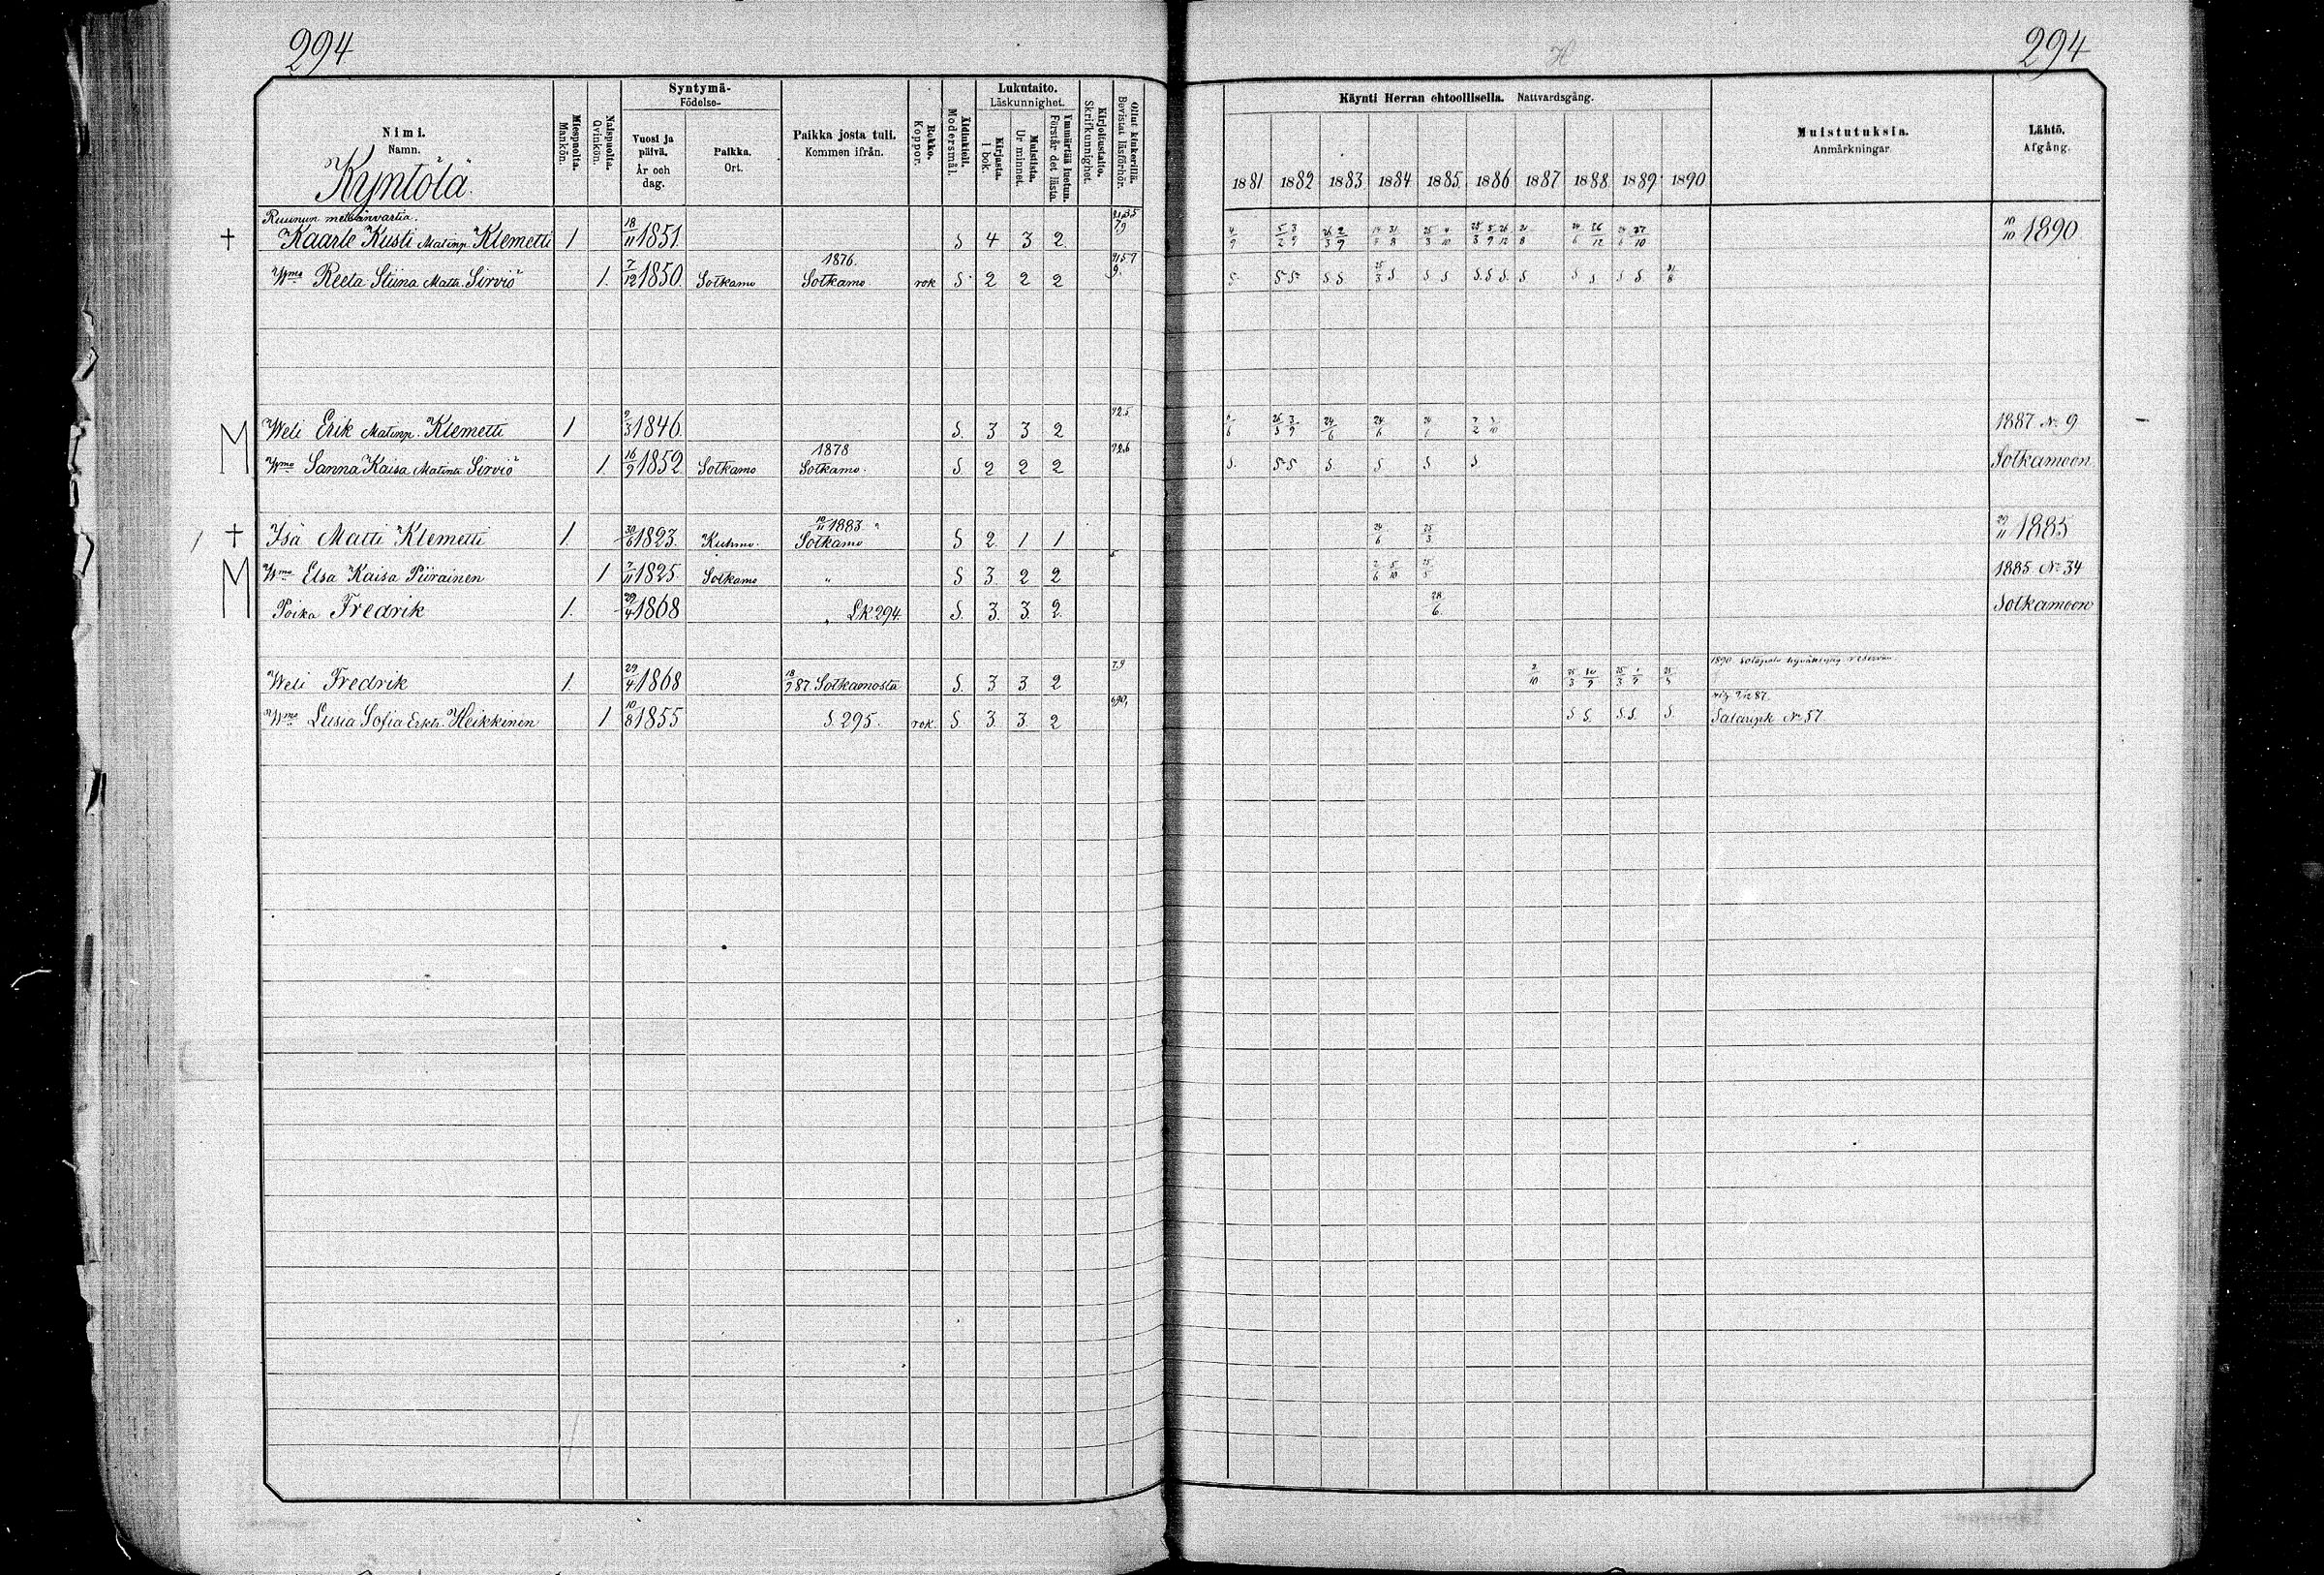 294
294
Nimi.
Namn.
Kyntölä.
Miespuolta.
Mankön.
Naispuolta.
Qvinkön.
Syntymä-
Födelse-
Vuosi ja päivä.
År och dag.
Paikka.
Ort.
Paikka josta tuli.
Kommen ifrån.
Rokko.
Koppor.
Äidinkieli.
Modersmål.
Lukutaito.
Läskunnighet.
Kirjasta.
I bok.
Muistista.
Ur minnet.
Ymmärtää luetun.
Förstår det lästa.
Kirjoitustaito.
Skrifkunnighet.
Ollut kinkerillä.
Bevistat läsförhör.
Käynti Herran ehtoollisella. Nattvardsgång.
1881 1882 1883 1884 1885 1886 1887 1888 1889 1890
Muistutuksia.
Anmärkningar
Lähtö.
Afgång.
Ruunun metsänvartia.
† Kaarle Kusti Matinp. Klemetti 1 18/11 1851. S 4 3 2. 10/10 1890
1876.
Wmo Reeta Stiina Matt. Sirviö 1. 7/12 1850. Sotkamo Sotkamo. rok S. 2 2 2 S. S S S S 25/3 S S S S S S S S S S S
M Weli Erik Matinp. Klemetti 1 9/3 1846. S. 3 3 2 1887 No 9
1878
Wmo Sanna Kaisa Matint. Sirviö 1 16/9 1852. Sotkamo Sotkamo. S. 2 2 2 S. S S S S S S Sotkamoon
10/11 1883
† Isä Matti Klemetti 1. 30/6 1823. Kuhmo. Sotkamo S 2. 1 1 24/6 25/3 29/11 1885
M Wmo Elsa Kaisa Piirainen 1 7/11 1825 Sotkamo " S 3. 2 2 2/6 5/10 1885 No 34
Poika Fredrik 1. 29/4 1868 " LK 294. S. 3. 3. 2. 28/6. Sotkamoon
Weli Fredrik 1. 29/4 1868 18/9 87. Sotkamosta S. 3 3 2 2/10 1890
Wmo Lusia Sofia Erkt. Heikkinen 1 10/8 1855 S 295. rok. S. 3 3. 2 S S. S. S. S. No 57